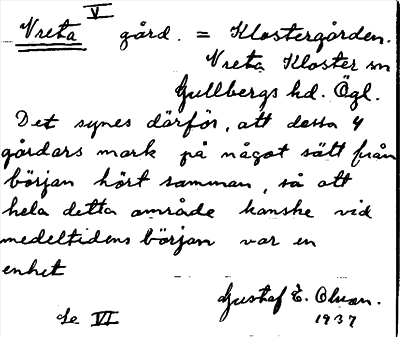 V
Vreta gård. = Klostergården.
Vreta Kloster sn
Gullbergs hd. Ögl.
Det synes därför, att dessa 4
gårdars mark på något sätt från
början hört samman, så att
hela detta område kanske vid
medeltidens början var en
enhet
Gustaf E. Olsson.
Se VI 1937